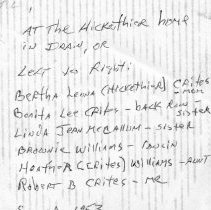 AT THE HICKETHIER HOME
IN IRAN, OR
LEFT TO RIGHT:
BERTHA LENNA (HICKETHIER) CRITES
- MOM
BONITA LEE CRITES - BACK ROW -
SISTER
LINDA JEAN McCALLUM - SISTER
BROWNIE WILLIAMS -
HEATHER (CRITES) WILLIAMS - AUNT
ROBERT B CRITES - ME
1953